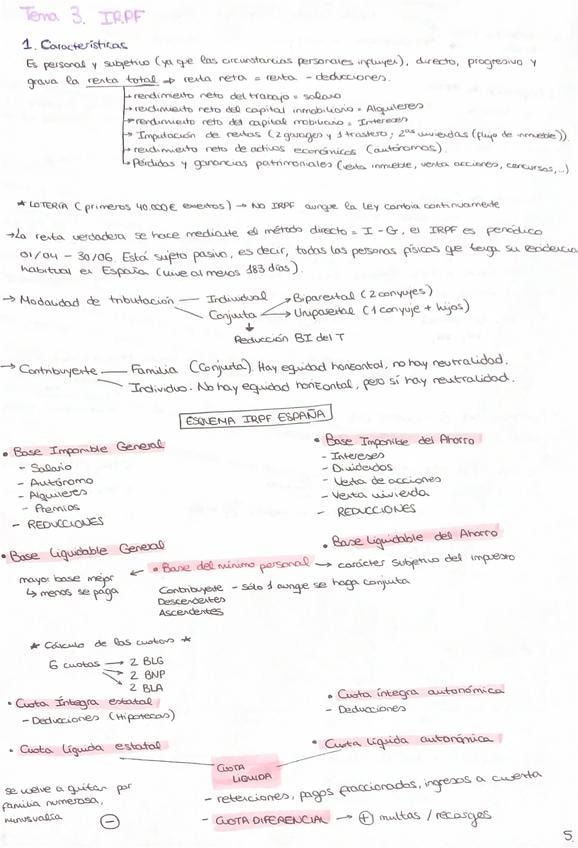 Tema 3. IRPF
1. Características
Es personal y subjetivo (ya que las circunstancias personales influyen), directo, progresivo y
grava la renta total ⇒ renta neta = renta - deducciones.
→ rendimiento neto del trabajo = salario
→ rendimiento neto del capital inmobiliario = Alquileres
→ rendimiento neto del capital mobiliario = Intereses
→ Imputación de rentas (2 garages y 1 trastero; 2as viviendas (flujo de inmueble)).
→ rendimiento neto de activos económicos (autónomos).
→ Pérdidas y ganancias patrimoniales (venta inmueble, venta acciones, concursos,...)
* LOTERÍA (primeros 40.000€ exentos) → NO IRPF aunque la Ley cambia continuamente
→ La renta verdadera se hace mediante el método directo = I - G, el IRPF es periódico
01/04 - 30/06. Está sujeto pasivo, es decir, todas las personas físicas que tenga su residencia
habitual en España (vive al menos 183 días).
→ Modalidad de tributación — Individual
Conjunta → Biparental (2 conyuges)
→ Uniparental (1 conyuje + hijos)
↓
Reducción BI del T
→ Contribuyente — Familia (Conjunta). Hay equidad horizontal, no hay neutralidad.
Individuo. No hay equidad horizontal, pero sí hay neutralidad.
ESQUEMA IRPF ESPAÑA
• Base Imponible General
- Salario
- Autónomo
- Alquileres
- Premios
- REDUCCIONES
• Base Imponible del Ahorro
- Intereses
- Dividendos
- Venta de acciones
- Venta vivienda
- REDUCCIONES
• Base Liquidable General
• Base Liquidable del Ahorro
mayor base mejor ← • Base del mínimo personal → carácter subjetivo del impuesto
↳ menos se paga
Contribuyente - sólo 1 aunque se haga conjunta
Descendentes
Ascendentes
* Cálculo de las cuotas *
6 cuotas → 2 BLG
→ 2 BNP
→ 2 BLA
• Cuota Íntegra estatal
- Deducciones (Hipotecas)
• Cuota íntegra autonómica
- Deducciones
• Cuota líquida estatal
• Cuota líquida autonómica
CUOTA
LIQUIDA
se vuelve a quitar por
familia numerosa,
minusvalía
⊖
- retenciones, pagos fraccionados, ingresos a cuenta
- CUOTA DIFERENCIAL → ⊕ multas / recargos
5